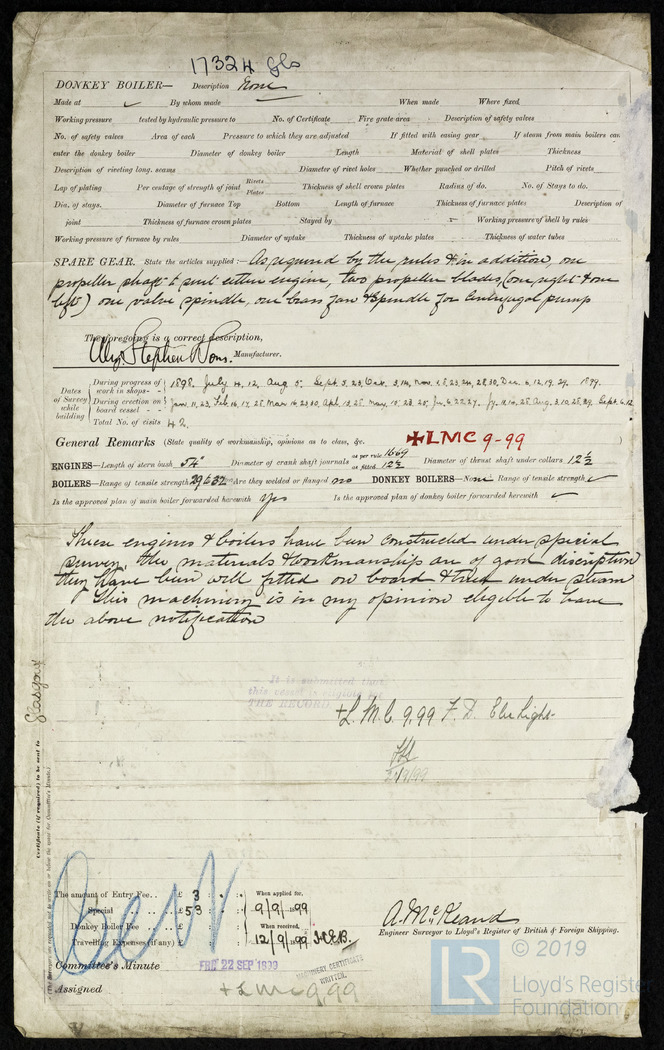 17324 Gls
DONKEY BOILER— Description None
Made at By whom made When made Where fixed
Working pressure tested by hydraulic pressure to No. of Certificate Fire grate area Description of safety valves
No. of safety valves Area of each Pressure to which they are adjusted If fitted with easing gear If steam from main boilers can
enter the donkey boiler Diameter of donkey boiler Length Material of shell plates Thickness
Description of riveting long. seams Diameter of rivet holes Whether punched or drilled Pitch of rivets
Lap of plating Per centage of strength of joint Rivets Plates Thickness of shell crown plates Radius of do. No. of Stays to do.
Dia. of stays. Diameter of furnace Top Bottom Length of furnace Thickness of furnace plates Description of
joint Thickness of furnace crown plates Stayed by Working pressure of shell by rules
Working pressure of furnace by rules Diameter of uptake Thickness of uptake plates Thickness of water tubes
SPARE GEAR. State the articles supplied:— As required by the rules & in addition one
propeller shaft to suit either engine, two propeller blades, (one right & one
left) one valve spindle, one brass fan & spindle for centrifugal pump
The foregoing is a correct description,
Alex. Stephen & Sons. Manufacturer.
Dates of Survey while building
During progress of work in shops - - 1898. July 4, 12, Aug 5, Sept. 5, 23, Oct. 3, 14, Nov. 1, 8, 23, 24, 28, 30, Dec. 6, 12, 19, 29. 1899.
During erection on board vessel - - Jan. 11, 23, Feb. 16, 17, 25 Mar. 16, 23, 30, Apl. 13, 25 May. 10, 23, 25, Ju. 6, 22, 27, Jy. 11, 14, 25 Aug. 3, 10, 25, 29, Sept. 6, 12
Total No. of visits 42
General Remarks (State quality of workmanship, opinions as to class, &c. +LMC 9-99
ENGINES—Length of stern bush 54" Diameter of crank shaft journals as per rule as fitted 12½ Diameter of thrust shaft under collars 12½
BOILERS—Range of tensile strength 29 to 32 Are they welded or flanged no DONKEY BOILERS—None Range of tensile strength
Is the approved plan of main boiler forwarded herewith yes Is the approved plan of donkey boiler forwarded herewith
These engines & boilers have been constructed under special
survey, the materials & workmanship are of good discription
they have been well fitted on board & tried under steam
This machinery is in my opinion eligible to have
the above notification
It is submitted that
this vessel is eligible for
THE RECORD
+L.M.C. 9.99 F.D. Elec Light
Certificate (if required) to be sent to Glasgow
The amount of Entry Fee . . £ 3 When applied for,
Special . . . . £ 53 9/9/1899
Donkey Boiler Fee . . . . £ When received,
Travelling Expenses (if any) £ 12/9/1899
A. McKeand
Engineer Surveyor to Lloyd's Register of British & Foreign Shipping.
Committee's Minute FRI 22 SEP 1899
MACHINERY CERTIFICATE WRITTEN.
Assigned + LMC 9.99
LR © 2019
Lloyd's Register
Foundation